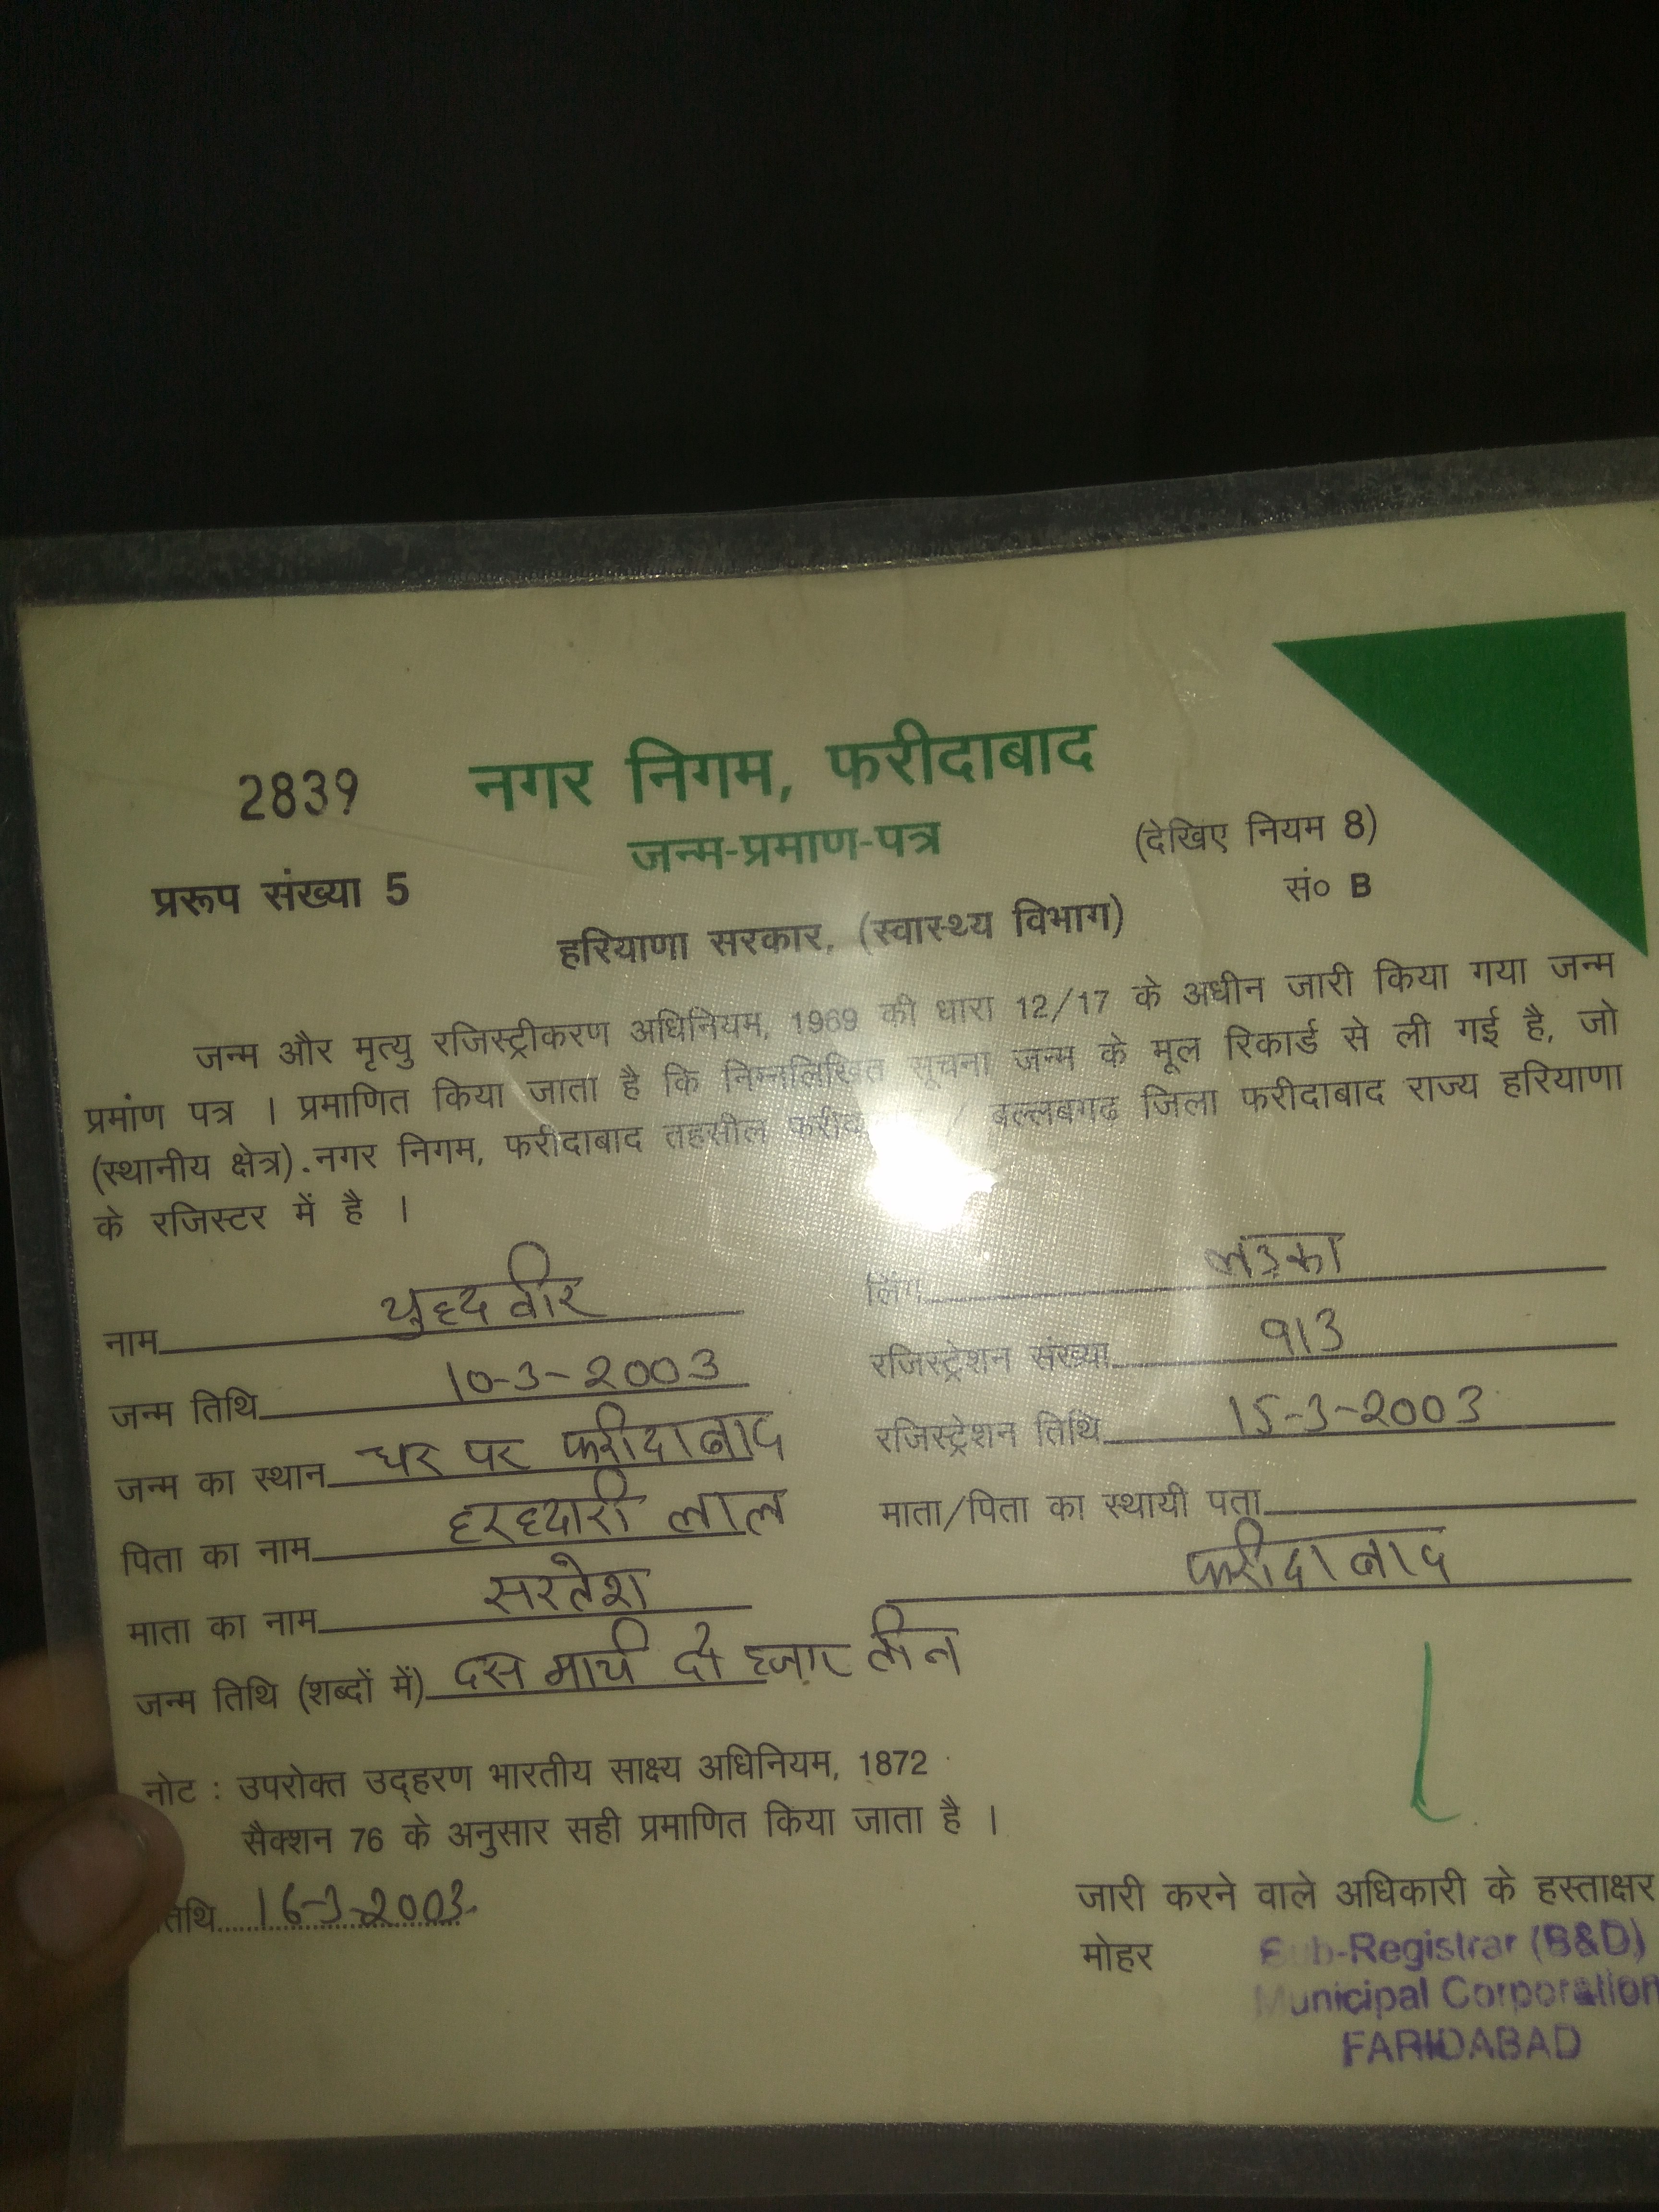 2839
नगर निगम, फरीदाबाद
जन्म-प्रमाण-पत्र
(देखिए नियम 8)
प्ररूप संख्या 5
सं० B
हरियाणा सरकार, (स्वास्थ्य विभाग)
जन्म और मृत्यु रजिस्ट्रीकरण अधिनियम, 1969 की धारा 12/17 के अधीन जारी किया गया जन्म
प्रमांण पत्र । प्रमाणित किया जाता है कि निम्नलिखित सूचना जन्म के मूल रिकार्ड से ली गई है, जो
(स्थानीय क्षेत्र). नगर निगम, फरीदाबाद तहसील / बल्लबगढ जिला फरीदाबाद राज्य हरियाणा
के रजिस्टर में है ।
नाम युद्दवीर
लिंग लड़का
जन्म तिथि 10-3-2003
रजिस्ट्रेशन संख्या 913
जन्म का स्थान घर पर फरीदाबाद
रजिस्ट्रेशन तिथि 15-3-2003
पिता का नाम लाल
माता/पिता का स्थायी पता
फरीदाबाद
माता का नाम सरतेश
जन्म तिथि (शब्दों में) दस मार्च दो हजार तीन
नोट : उपरोक्त उद्हरण भारतीय साक्ष्य अधिनियम, 1872
सैक्शन 76 के अनुसार सही प्रमाणित किया जाता है ।
तिथि 16-3-2003.
जारी करने वाले अधिकारी के हस्ताक्षर
मोहर
Sub-Registrar (B&D)
Municipal Corporation
FARIDABAD